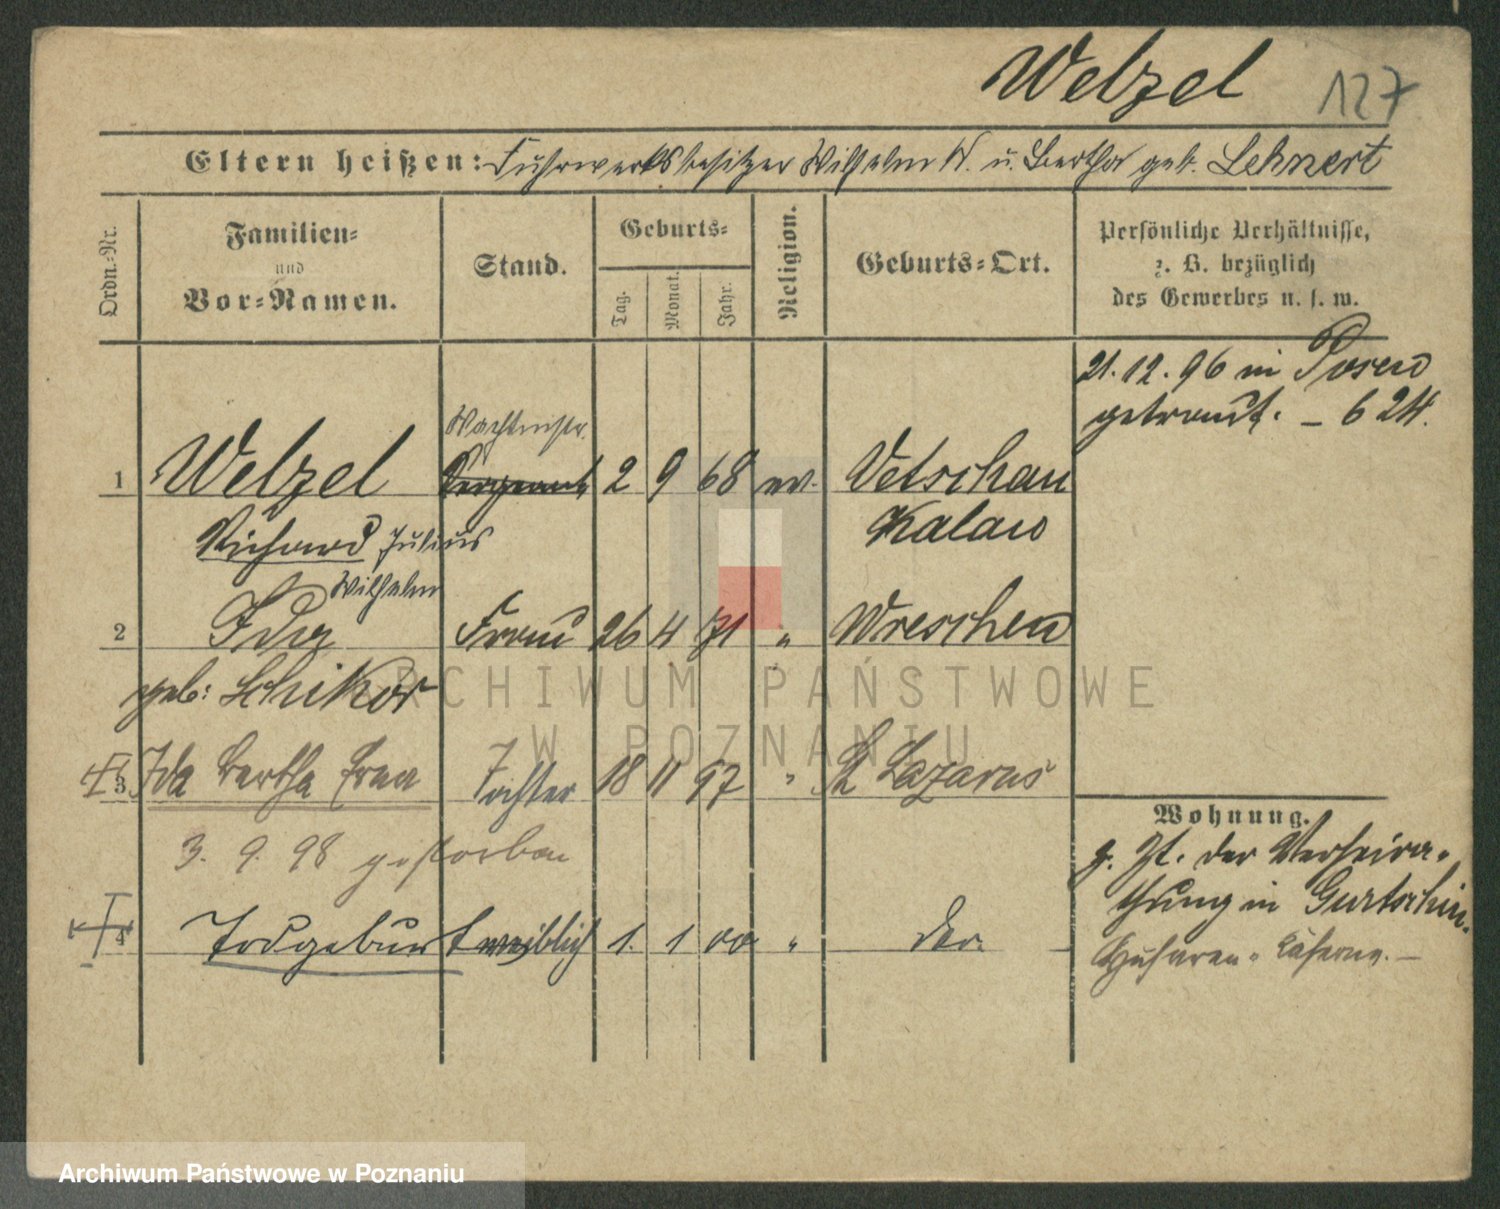 Welzel 127
Eltern heißen: Fuhrwerksbesitzer Wilhelm W. u. Bertha geb. Lehnert
Ordn.-Nr.
Familien-
und
Vor-Namen.
Stand.
Geburts-
Tag.
Monat.
Jahr.
Religion.
Geburts-Ort.
Persönliche Verhältnisse,
z. B. bezüglich
des Gewerbes u. s. w.
21.12.96 in Posen
getraut. – 624.
Wachtmstr.
1 Welzel Sergeant 2 9 68 ev. Vetschau
Richard Julius Kalau
Wilhelm
2 Ida Frau 26 4 71 " Wreschen
geb: Schikor
3 Ida Bertha Erna Tochter 18 11 97 " St Lazarus
3. 9. 98 gestorben
4 Todgeburt weiblich 1. 1 00 " der.
Wohnung.
z. Zt. der Verheira-
thung in Gurtschin.
Husaren-Kaserne. –
ARCHIWUM PAŃSTWOWE
W POZNANIU
Archiwum Państwowe w Poznaniu